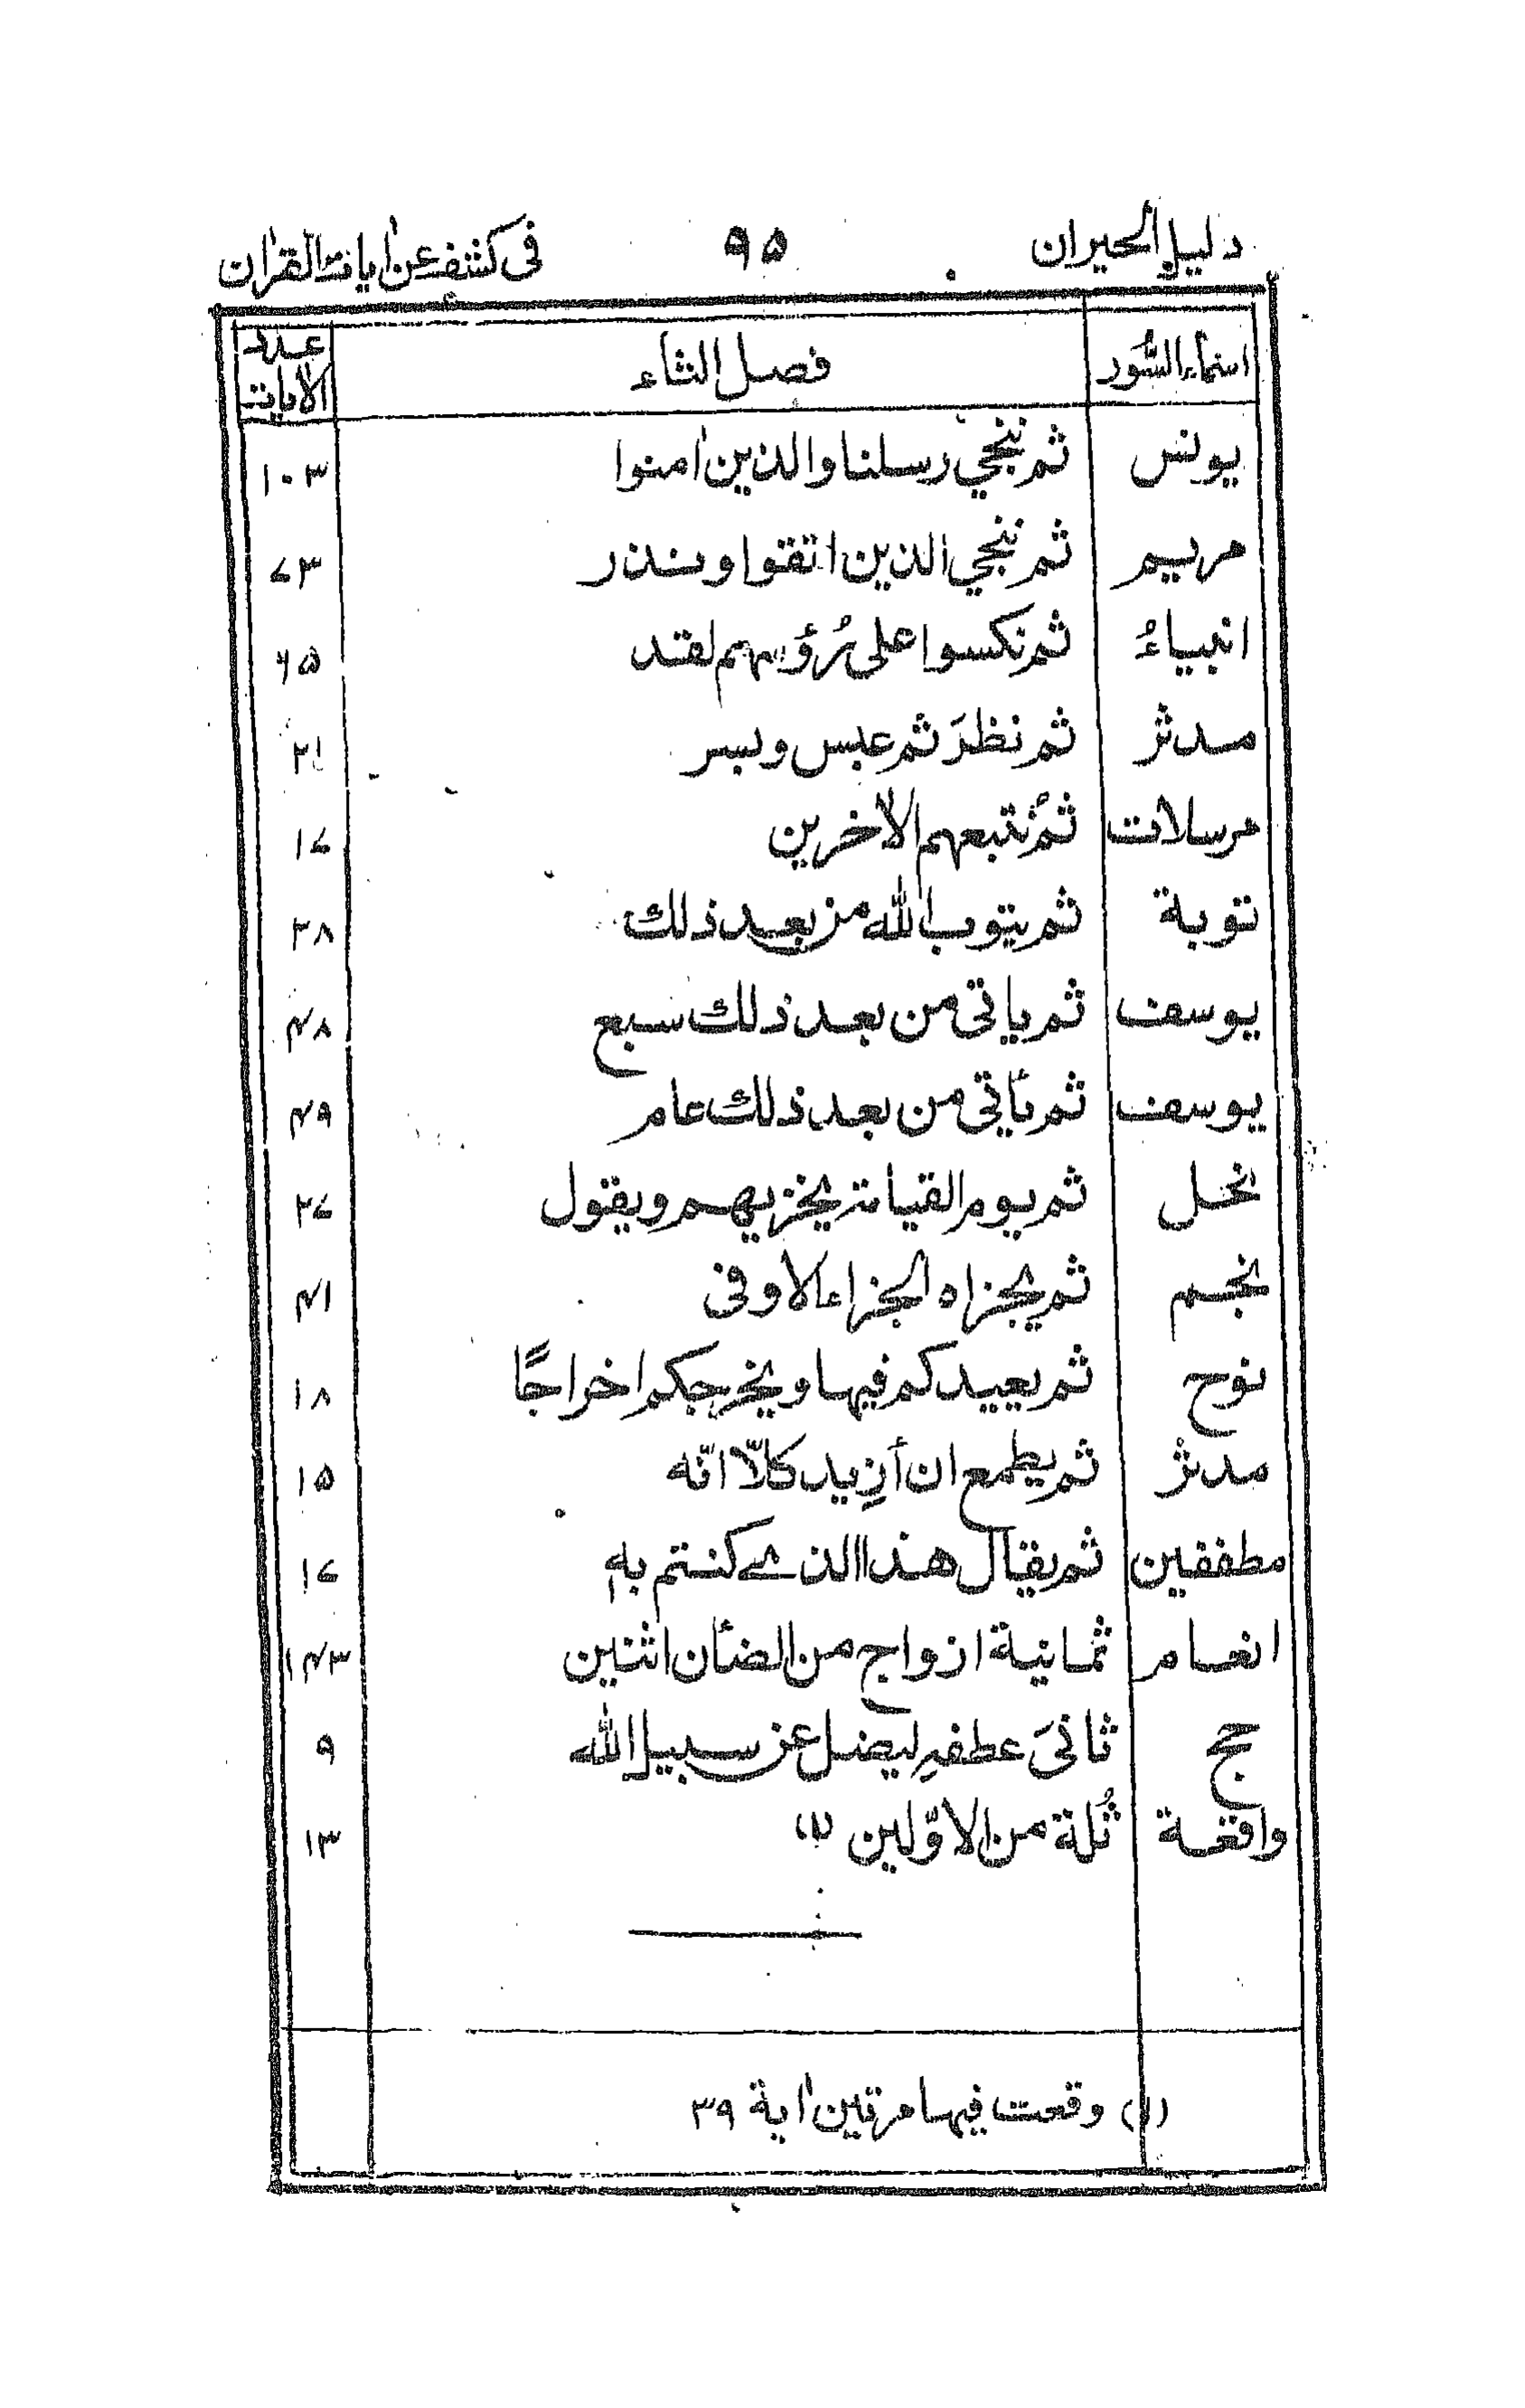 دليل الحيران ٩٥ فى كشف عن اٰيات القراٰن
اسماء السُّور فصل الثاء عدد الاٰيات
يونس ثم ننجي رسلنا والذين اٰمنوا ١٠٣
مريم ثم ننجي الذين اتقوا ونذر ٧٣
انبياءُ ثم نكسوا على رُؤسهم لقد ٦٥
مدثر ثم نظرَ ثم عبس وبسر ٢١
مرسلات ثم نُتبعهم الاٰخرين ١٧
توبة ثم يتوب الله من بعد ذلك ٢٨
يوسف ثم ياتى من بعد ذلك سبع ٤٨
يوسف ثم يأتى من بعد ذلك عام ٤٩
نحل ثم يوم القيامة يخزيهم ويقول ٢٧
نجم ثم يجزاه الجزاء الاوفى ٤١
نوح ثم يعيدكم فيها ويخرجكم اخراجًا ١٨
مدثر ثم يطمع ان أزيد كلّا انّه ١٥
مطففين ثم يقال هذا الذى كنتم به ١٧
انعام ثمانية ازواج من الضأن اثنين ١٤٣
حج ثانىَ عطفهِ ليضل عن سبيل الله ٩
واقعة ثُلة من الاوّلين (١) ١٣
(١) وقعت فيها مرتين اٰية ٣٩